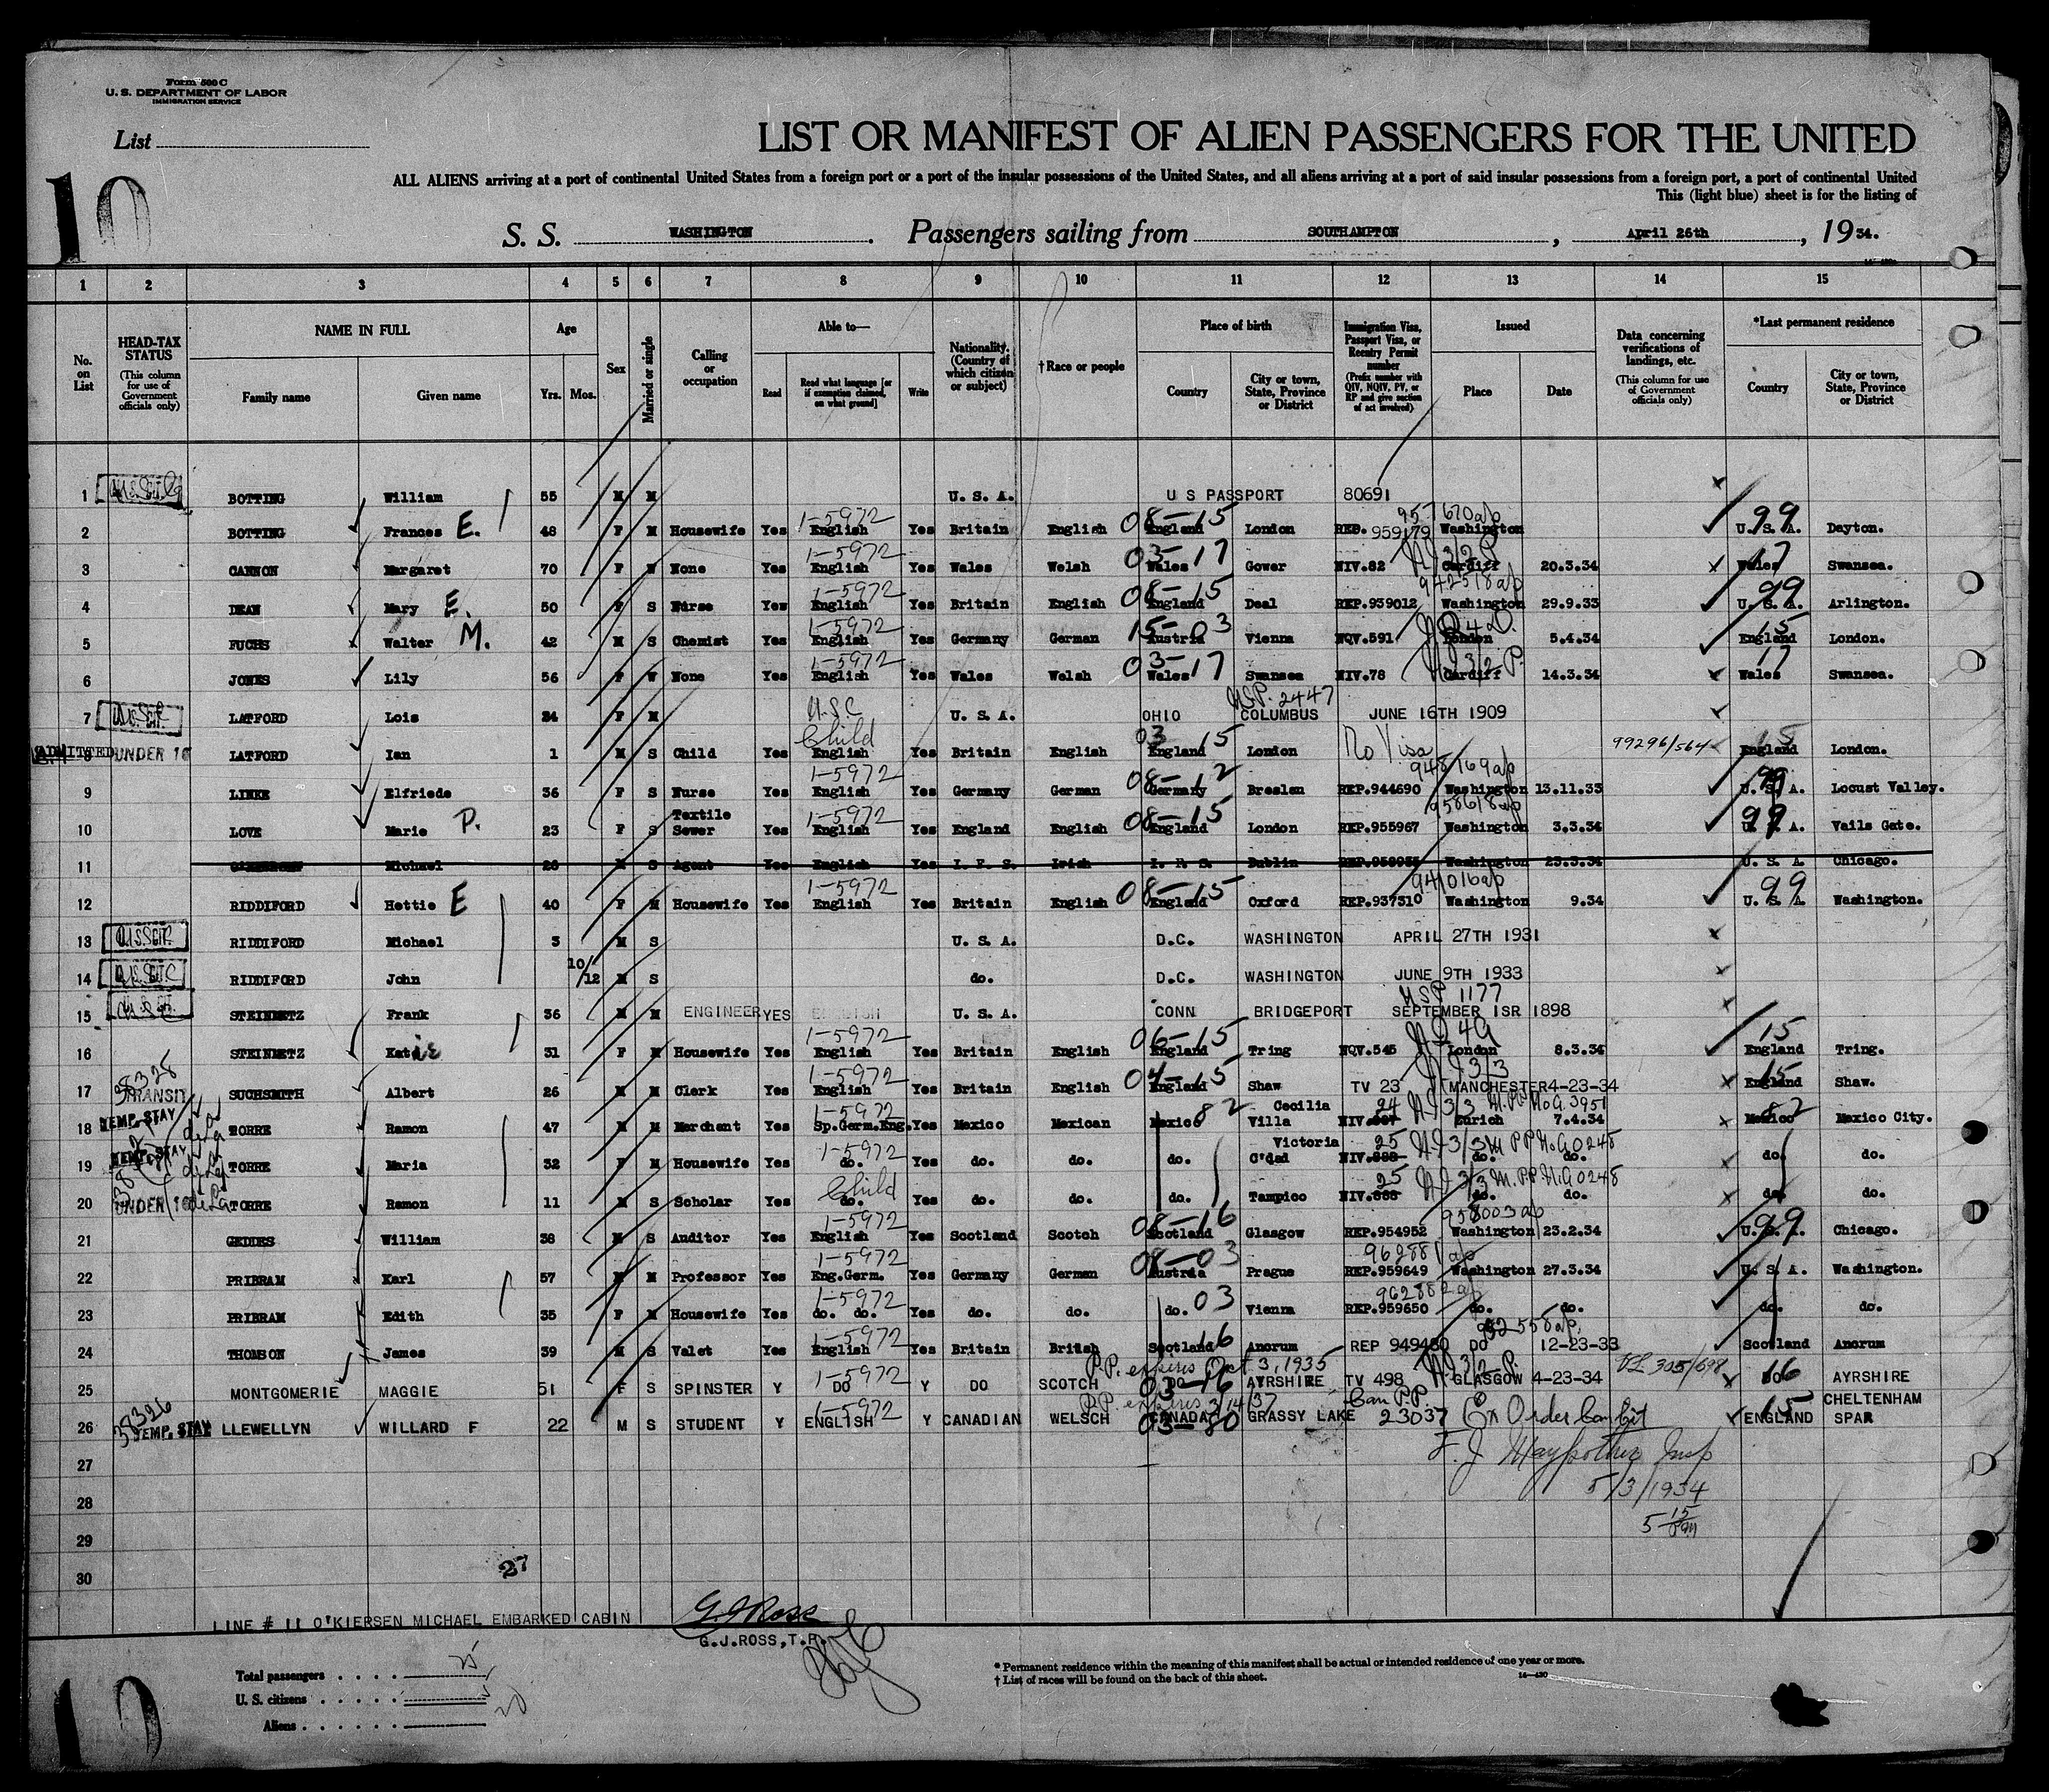 Form 500 C
U. S. DEPARTMENT OF LABOR
IMMIGRATION SERVICE
List
10
LIST OR MANIFEST OF ALIEN PASSENGERS FOR THE UNITED
ALL ALIENS arriving at a port of continental United States from a foreign port or a port of the insular possessions of the United States, and all aliens arriving at a port of said insular possessions from a foreign port, a port of continental United
This (light blue) sheet is for the listing of
S. S. WASHINGTON. Passengers sailing from SOUTHAMPTON, April 26th, 1934.
1 2 3 4 5 6 7 8 9 10 11 12 13 14 15
No. on List
HEAD-TAX STATUS (This column for use of Government officials only)
NAME IN FULL Family name Given name
Age Yrs. Mos.
Sex
Married or single
Calling or occupation
Able to— Read Read what language [or if exemption claimed, on what ground] Write
Nationality. (Country of which citizen or subject)
† Race or people
Place of birth Country City or town, State, Province or District
Immigration Visa, Passport Visa, or Reentry Permit number (Prefix number with QIV, NQIV, PV, or RP and give section of act involved)
Issued Place Date
Data concerning verifications of landings, etc. (This column for use of Government officials only)
*Last permanent residence Country City or town, State, Province or District
1 BOTTING William 55 M M U. S. A. U S PASSPORT 80691
1-5972 957670 ap
2 BOTTING Frances E. 48 F M Housewife Yes English Yes Britain English 08-15 England London REP. 959179 Washington 99 U. S. A. Dayton.
1-5972
3 CANNON Margaret 70 F W None Yes English Yes Wales Welsh 03-17 Wales Gower NIV.82 Cardiff 20.3.34 17 Wales Swansea.
1-5972 942518 ap
4 DEAN Mary E. 50 F S Nurse Yes English Yes Britain English 08-15 England Deal REP.939012 Washington 29.9.33 99 U. S. A. Arlington.
1-5972
5 FUCHS Walter M. 42 M S Chemist Yes English Yes Germany German 15-03 Austria Vienna NQV.591 London 5.4.34 15 England London.
1-5972
6 JONES Lily 56 F W None Yes English Yes Wales Welsh 03-17 Wales Swansea NIV.78 Cardiff 14.3.34 17 Wales Swansea.
U.S.C USP. 2447
7 LATFORD Lois 24 F M U. S. A. OHIO COLUMBUS JUNE 16TH 1909
Child
8 ADMITTED UNDER 16 LATFORD Ian 1 M S Child Yes English Yes Britain English 03 15 England London No Visa 99296/564 15 England London.
1-5972 948169 ap
9 LINKE Elfriede 36 F S Nurse Yes English Yes Germany German 08-12 Germany Breslen REP.944690 Washington 13.11.33 99 U. S. A. Locust Valley.
1-5972 958618 ap
10 LOVE Marie P. 23 F S Textile Sewer Yes English Yes England English 08-15 England London REP.955967 Washington 3.3.34 99 U. S. A. Vails Gate.
11 Michael 26 M S Agent Yes English Yes I. F. S. Irish I. F. S. Dublin Washington 23.3.34 U. S. A. Chicago.
1-5972 941016 ap
12 RIDDIFORD Hettie E 40 F M Housewife Yes English Yes Britain English 08-15 England Oxford REP.937310 Washington 9.34 99 U. S. A. Washington.
13 RIDDIFORD Michael 3 M S U. S. A. D.C. WASHINGTON APRIL 27TH 1931
14 RIDDIFORD John 10/12 M S do. D.C. WASHINGTON JUNE 9TH 1933
USP 1177
15 STEINMETZ Frank 36 M M ENGINEER YES ENGLISH U. S. A. CONN BRIDGEPORT SEPTEMBER 1SR 1898
1-5972
16 STEINMETZ Katie 31 F M Housewife Yes English Yes Britain English 06-15 England Tring NQV.545 London 8.3.34 15 England Tring.
1-5972
17 38328 TRANSIT SUCHSMITH Albert 26 M M Clerk Yes English Yes Britain English 04-15 England Shaw TV 23 MANCHESTER 4-23-34 15 England Shaw.
1-5972
18 TEMP. STAY de la TORRE Ramon 47 M M Merchant Yes Sp.Germ.Eng. Yes Mexico Mexican Mexico 82 Cecilia Villa NIV. 24 Zurich 7.4.34 Mexico 82 Mexico City.
1-5972
19 TEMP. STAY de la TORRE Maria 32 F M Housewife Yes do. Yes do. do. do. Victoria C'dad NIV. 25 do. do. do. do.
Child
20 UNDER 16 de la TORRE Ramon 11 M S Scholar Yes do. Yes do. do. do. Tampico NIV. 25 do. do. do. do.
1-5972 958003 ap
21 GEDDES William 38 M S Auditor Yes English Yes Scotland Scotch 08-16 Scotland Glasgow REP.954952 Washington 23.2.34 99 U. S. A. Chicago.
1-5972 962881 ap
22 PRIBRAM Karl 57 M M Professor Yes Eng.Germ. Yes Germany German 08-03 Austria Prague REP.959649 Washington 27.3.34 U. S. A. Washington.
1-5972 962882 ap
23 PRIBRAM Edith 35 F M Housewife Yes do. do. Yes do. do. do. 03 Vienna REP.959650 do. do. do. do.
1-5972 952558 ap.
24 THOMSON James 39 M S Valet Yes English Yes Britain British Scotland 16 Ancrum REP 949480 DO 12-23-33 Scotland Ancrum
1-5972 P.P. expires Oct 3, 1935
25 MONTGOMERIE MAGGIE 51 F S SPINSTER Y DO Y DO SCOTCH DO 03-16 AYRSHIRE TV 498 GLASGOW 4-23-34 305/698 DO 16 AYRSHIRE
1-5972 P.P. expires 3/14/37 Can P.P.
26 38326 TEMP. STAY LLEWELLYN WILLARD F 22 M S STUDENT Y ENGLISH Y CANADIAN WELSCH CANADA 03-80 GRASSY LAKE 23037 Ex Order 15 ENGLAND CHELTENHAM SPAR
27
28 5/3/1934
29 5 15 PM
30
27
LINE # 11 O'KIERSEN MICHAEL EMBARKED CABIN
G J Ross
G.J.ROSS, T.P.
Total passengers 25
U. S. citizens 5
Aliens 20
* Permanent residence within the meaning of this manifest shall be actual or intended residence of one year or more.
† List of races will be found on the back of this sheet.
14—430
10